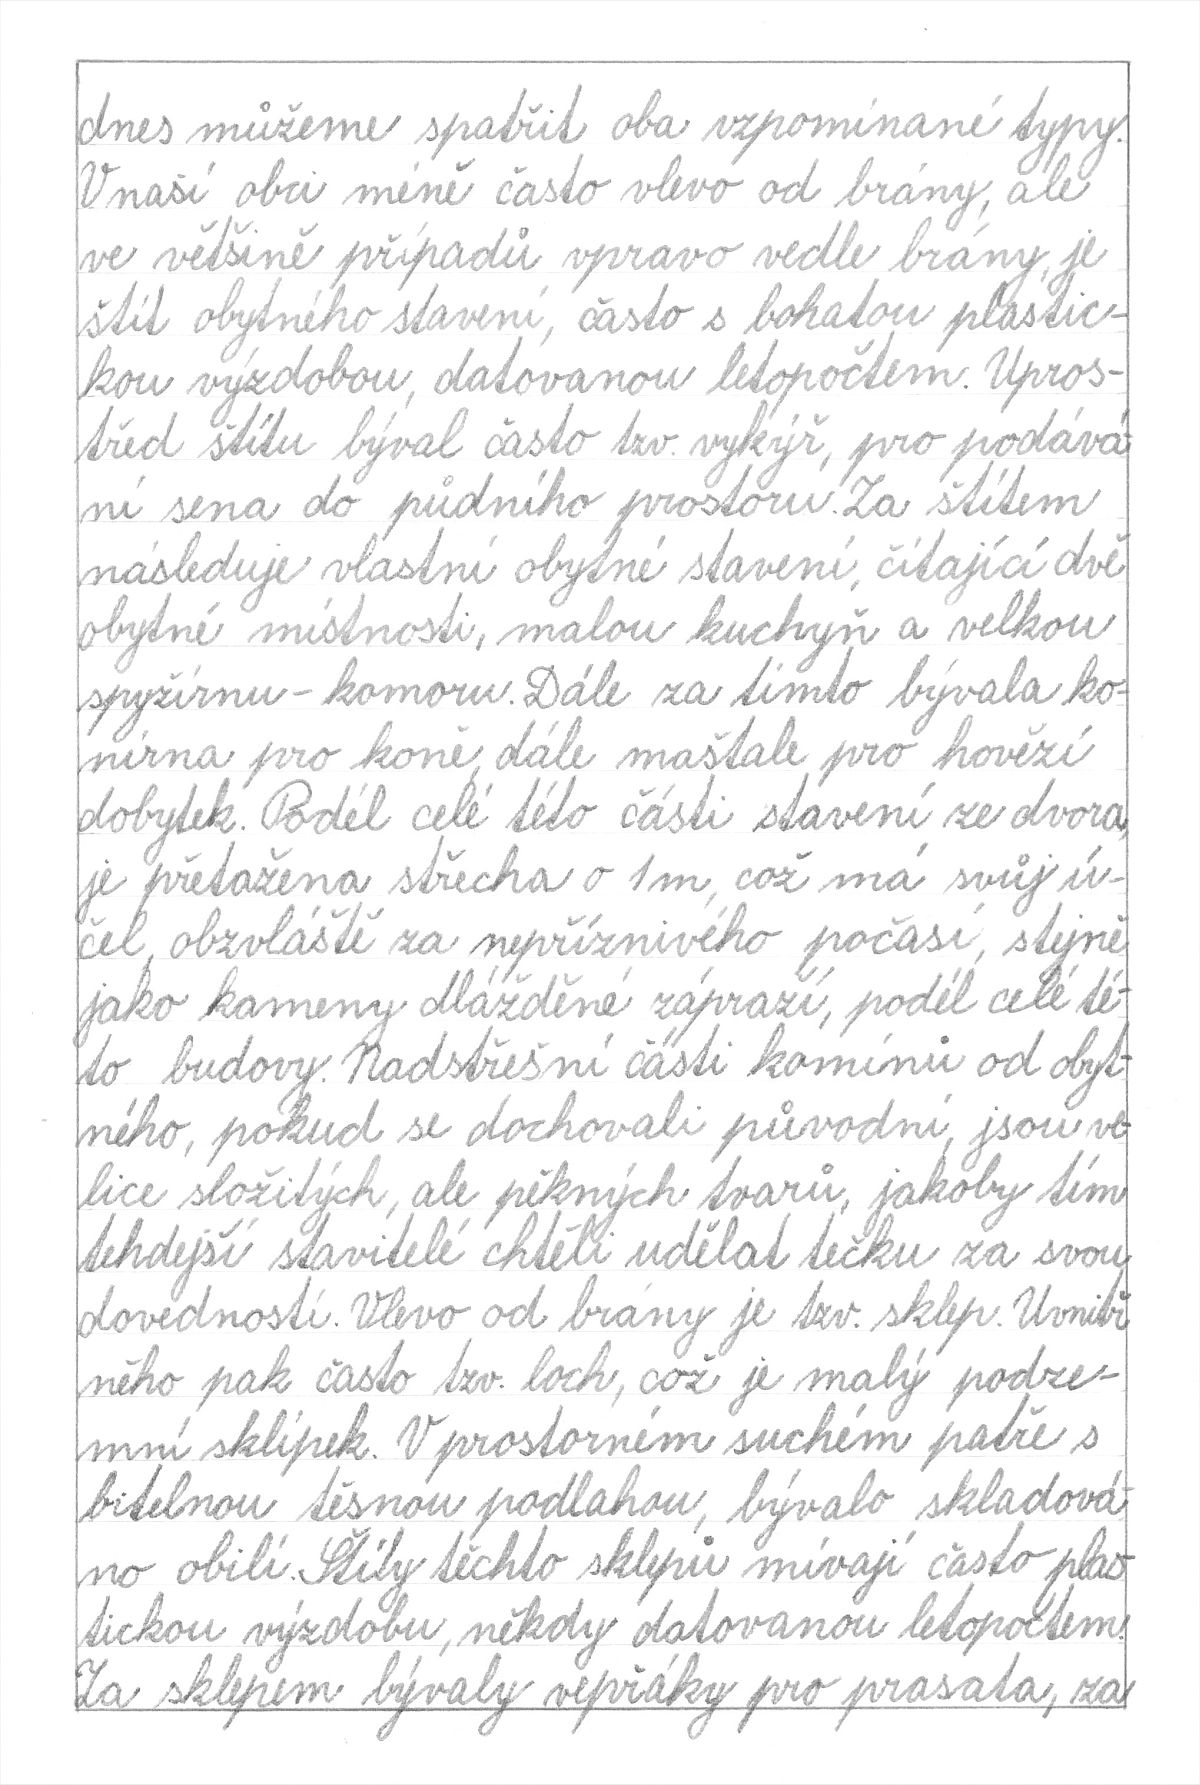 dnes můžeme spatřit oba vzpomínané typy.
V naší obci méně často vlevo od brány, ale
ve většině případů vpravo vedle brány, je
štít obytného stavení, často s bohatou plastic-
kou výzdobou, datovanou letopočtem. Upros-
třed štítu býval často tzv. vykýř, pro podává-
ní sena do půdního prostoru. Za štítem
následuje vlastní obytné stavení, čítající dvě
obytné místnosti, malou kuchyň a velkou
spyžírnu - komoru. Dále za tímto bývala ko-
nírna pro koně, dále maštale pro hovězí
dobytek. Podél celé této části stavení ze dvora,
je přetažena střecha o 1 m, což má svůj ú-
čel, obzvláště za nepříznivého počasí, stejně
jako kameny dlážděné zápraží, podél celé té-
to budovy. Nadstřešní části komínů od obyt-
ného, pokud se dochovali původní, jsou ve-
lice složitých, ale pěkných tvarů, jakoby tím
tehdejší stavitelé chtěli udělat tečku za svou
dovedností. Vlevo od brány je tzv. sklep. Uvnitř
něho pak často tzv. loch, což je malý podze-
mní sklípek. V prostorném suchém patře s
bitelnou těsnou podlahou, bývalo skladová-
no obilí. Štíty těchto sklepů mívají často plas-
tickou výzdobu, někdy datovanou letopočtem.
Za sklepem bývaly vepřáky pro prasata, za